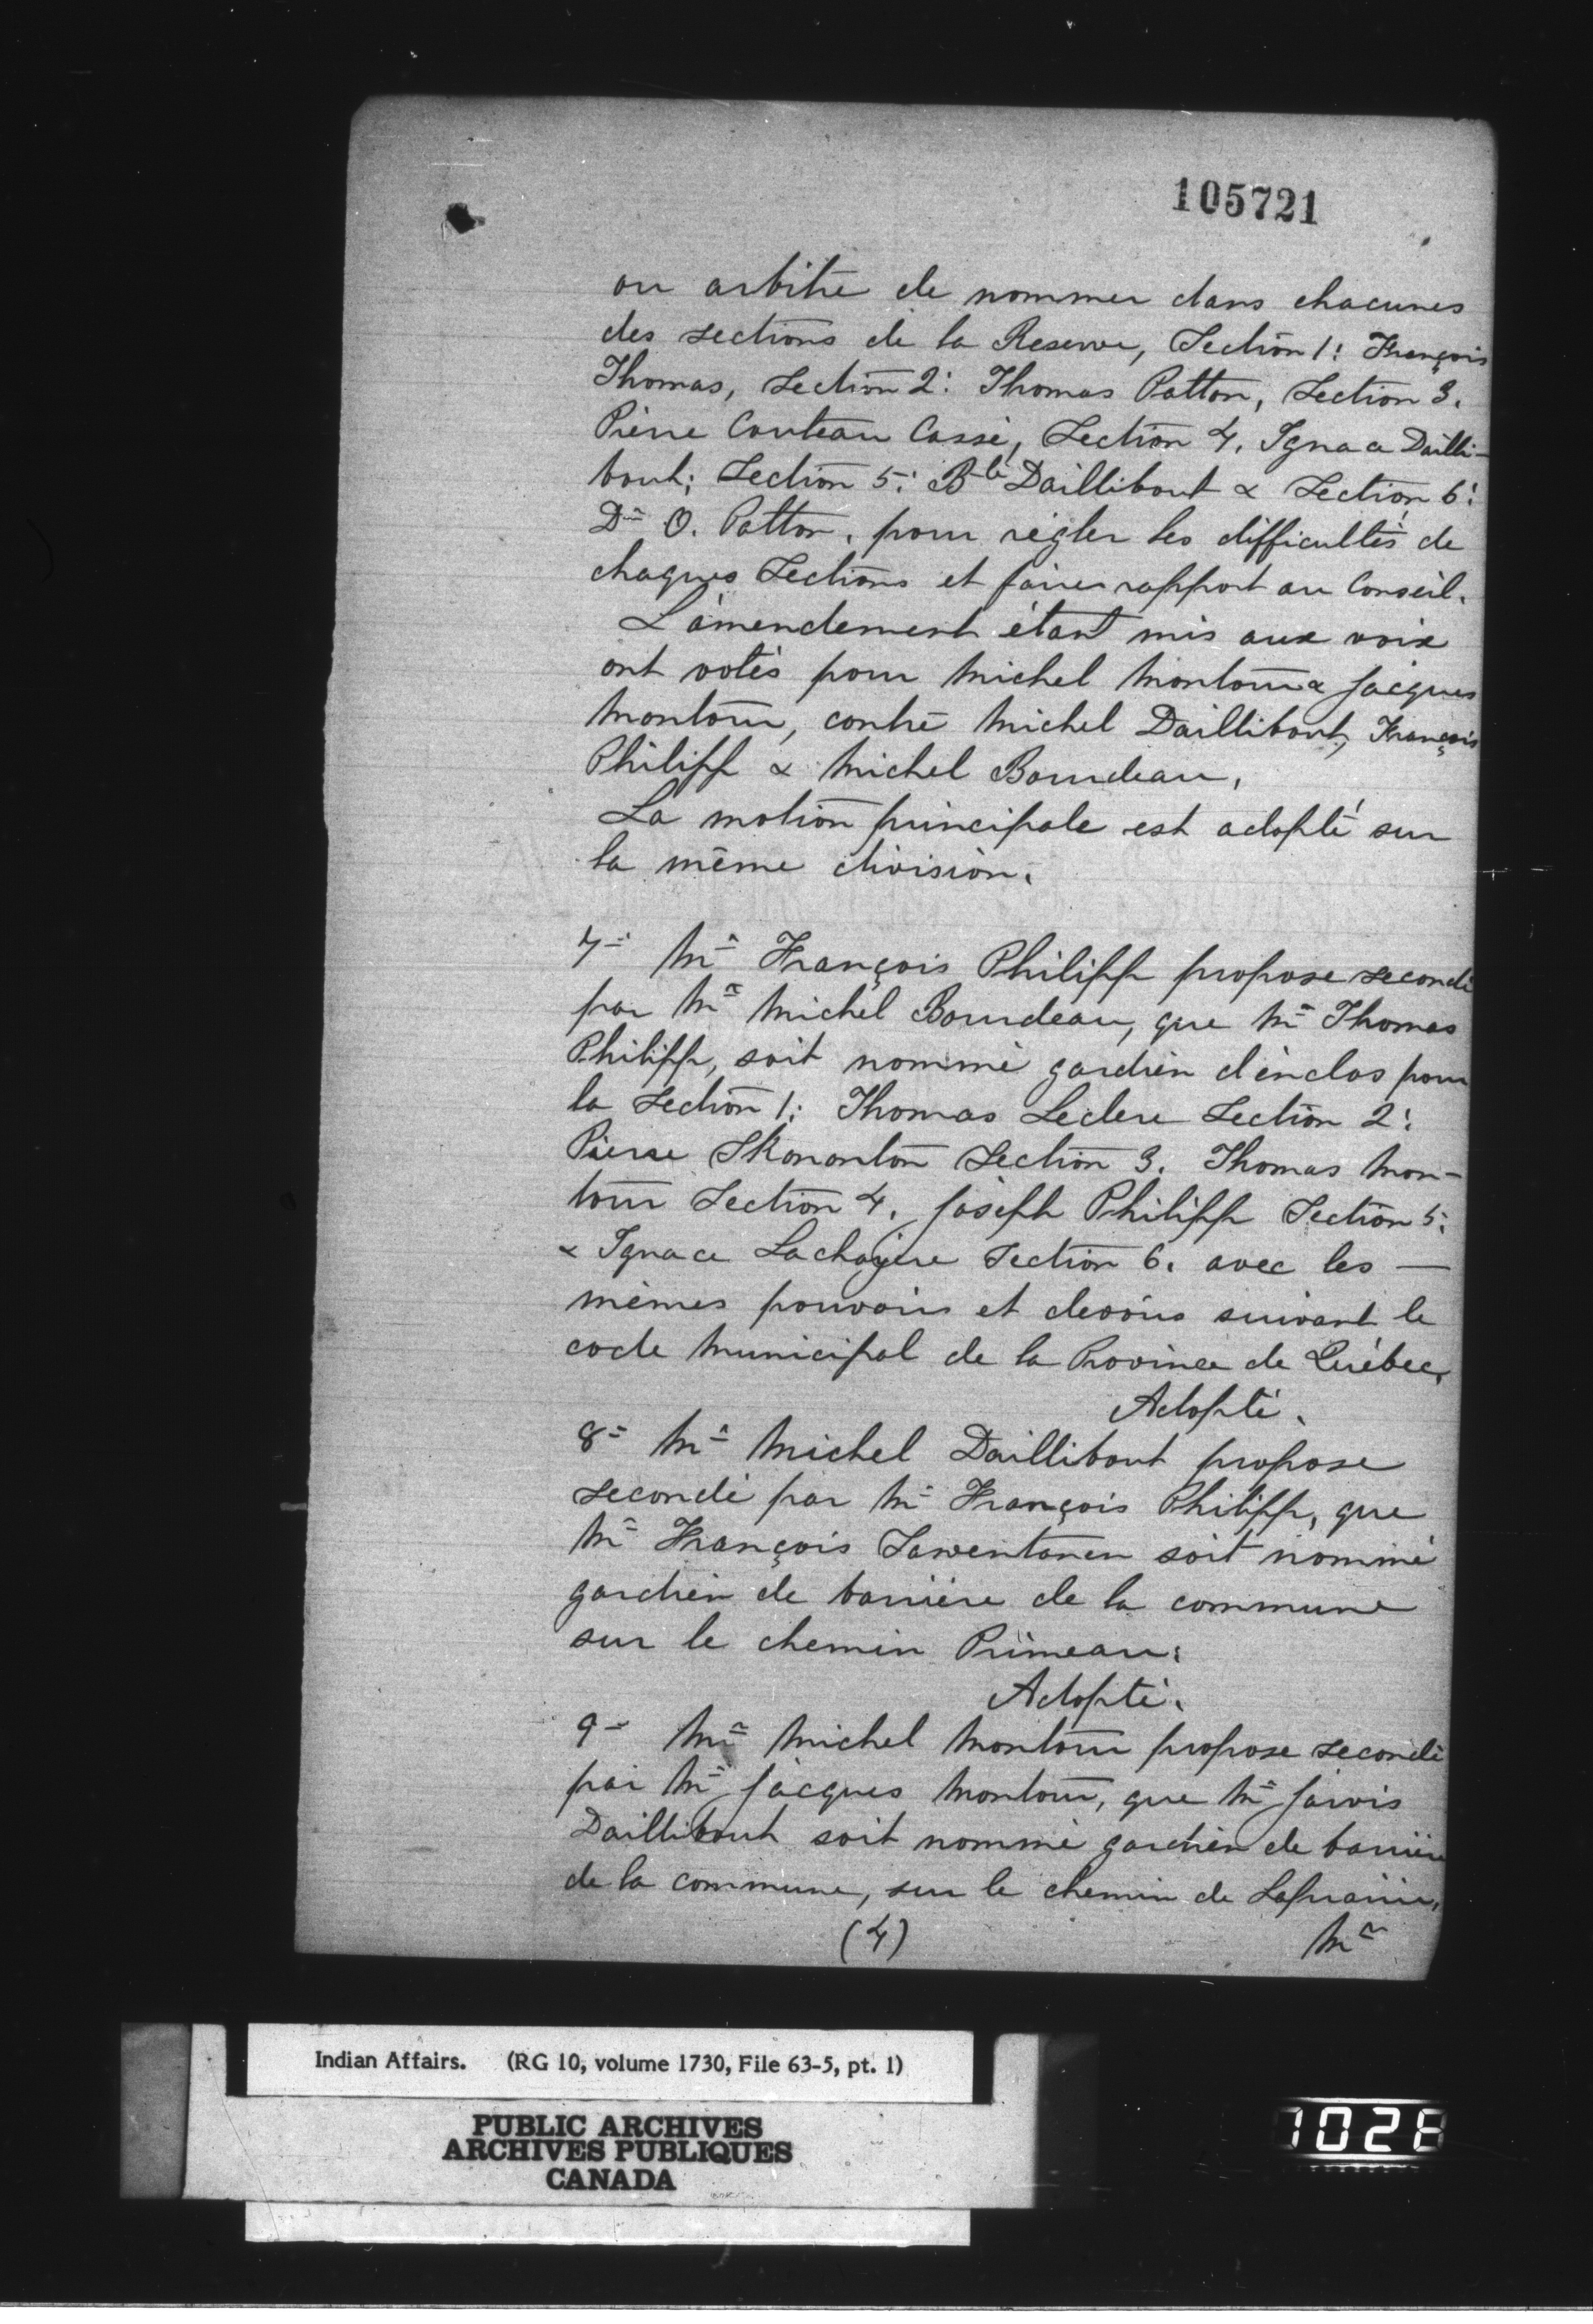 105721
ou arbitre de nommer dans chacunes
des sections de la Reserve, Section 1: François
Thomas, Section 2: Thomas Patton, Section 3.
Pierre Couteau Cassé, Section 4. Ignace Dailli-
bout; Section 5: Bte Daillibout & Section 6:
Dr O. Patton, pour régler les difficultés de
chaques Sections et faires rapport au Conseil.
L'amendement étant mis aux voix
ont votés pour Michel Montour & Jacques
Montour, contre Michel Daillibout, François
Philipp & Michel Bourdeau,
La motion principale est adopté sur
la même division.
7- Mr François Philipp propose secondé
par Mr Michel Bourdeau, que Mr Thomas
Philipp, soit nommé gardien d'enclos pour
la Section 1: Thomas Leclere Section 2:
Pierre Skononton Section 3. Thomas Mon-
tour Section 4. Joseph Philipp Section 5:
& Ignace Lachayere Section 6. avec les —
mêmes pouvoirs et devoirs suivant le
code Municipal de la Province de Québec,
Adopté.
8- Mr Michel Daillibout propose
secondé par Mr François Philipp, que
Mr François Sawentanen soit nommé
gardien de barrière de la commune
sur le chemin Primeau:
Adopté.
9- Mr Michel Montour propose secondé
par Mr Jacques Montour, que Mr Jarvis
Daillibout soit nommé gardien de barrière
de la commune, sur le chemin de Laprairie,
(4) Mr
Indian Affairs. (RG 10, volume 1730, File 63-5, pt. 1)
PUBLIC ARCHIVES
ARCHIVES PUBLIQUES
CANADA
1028